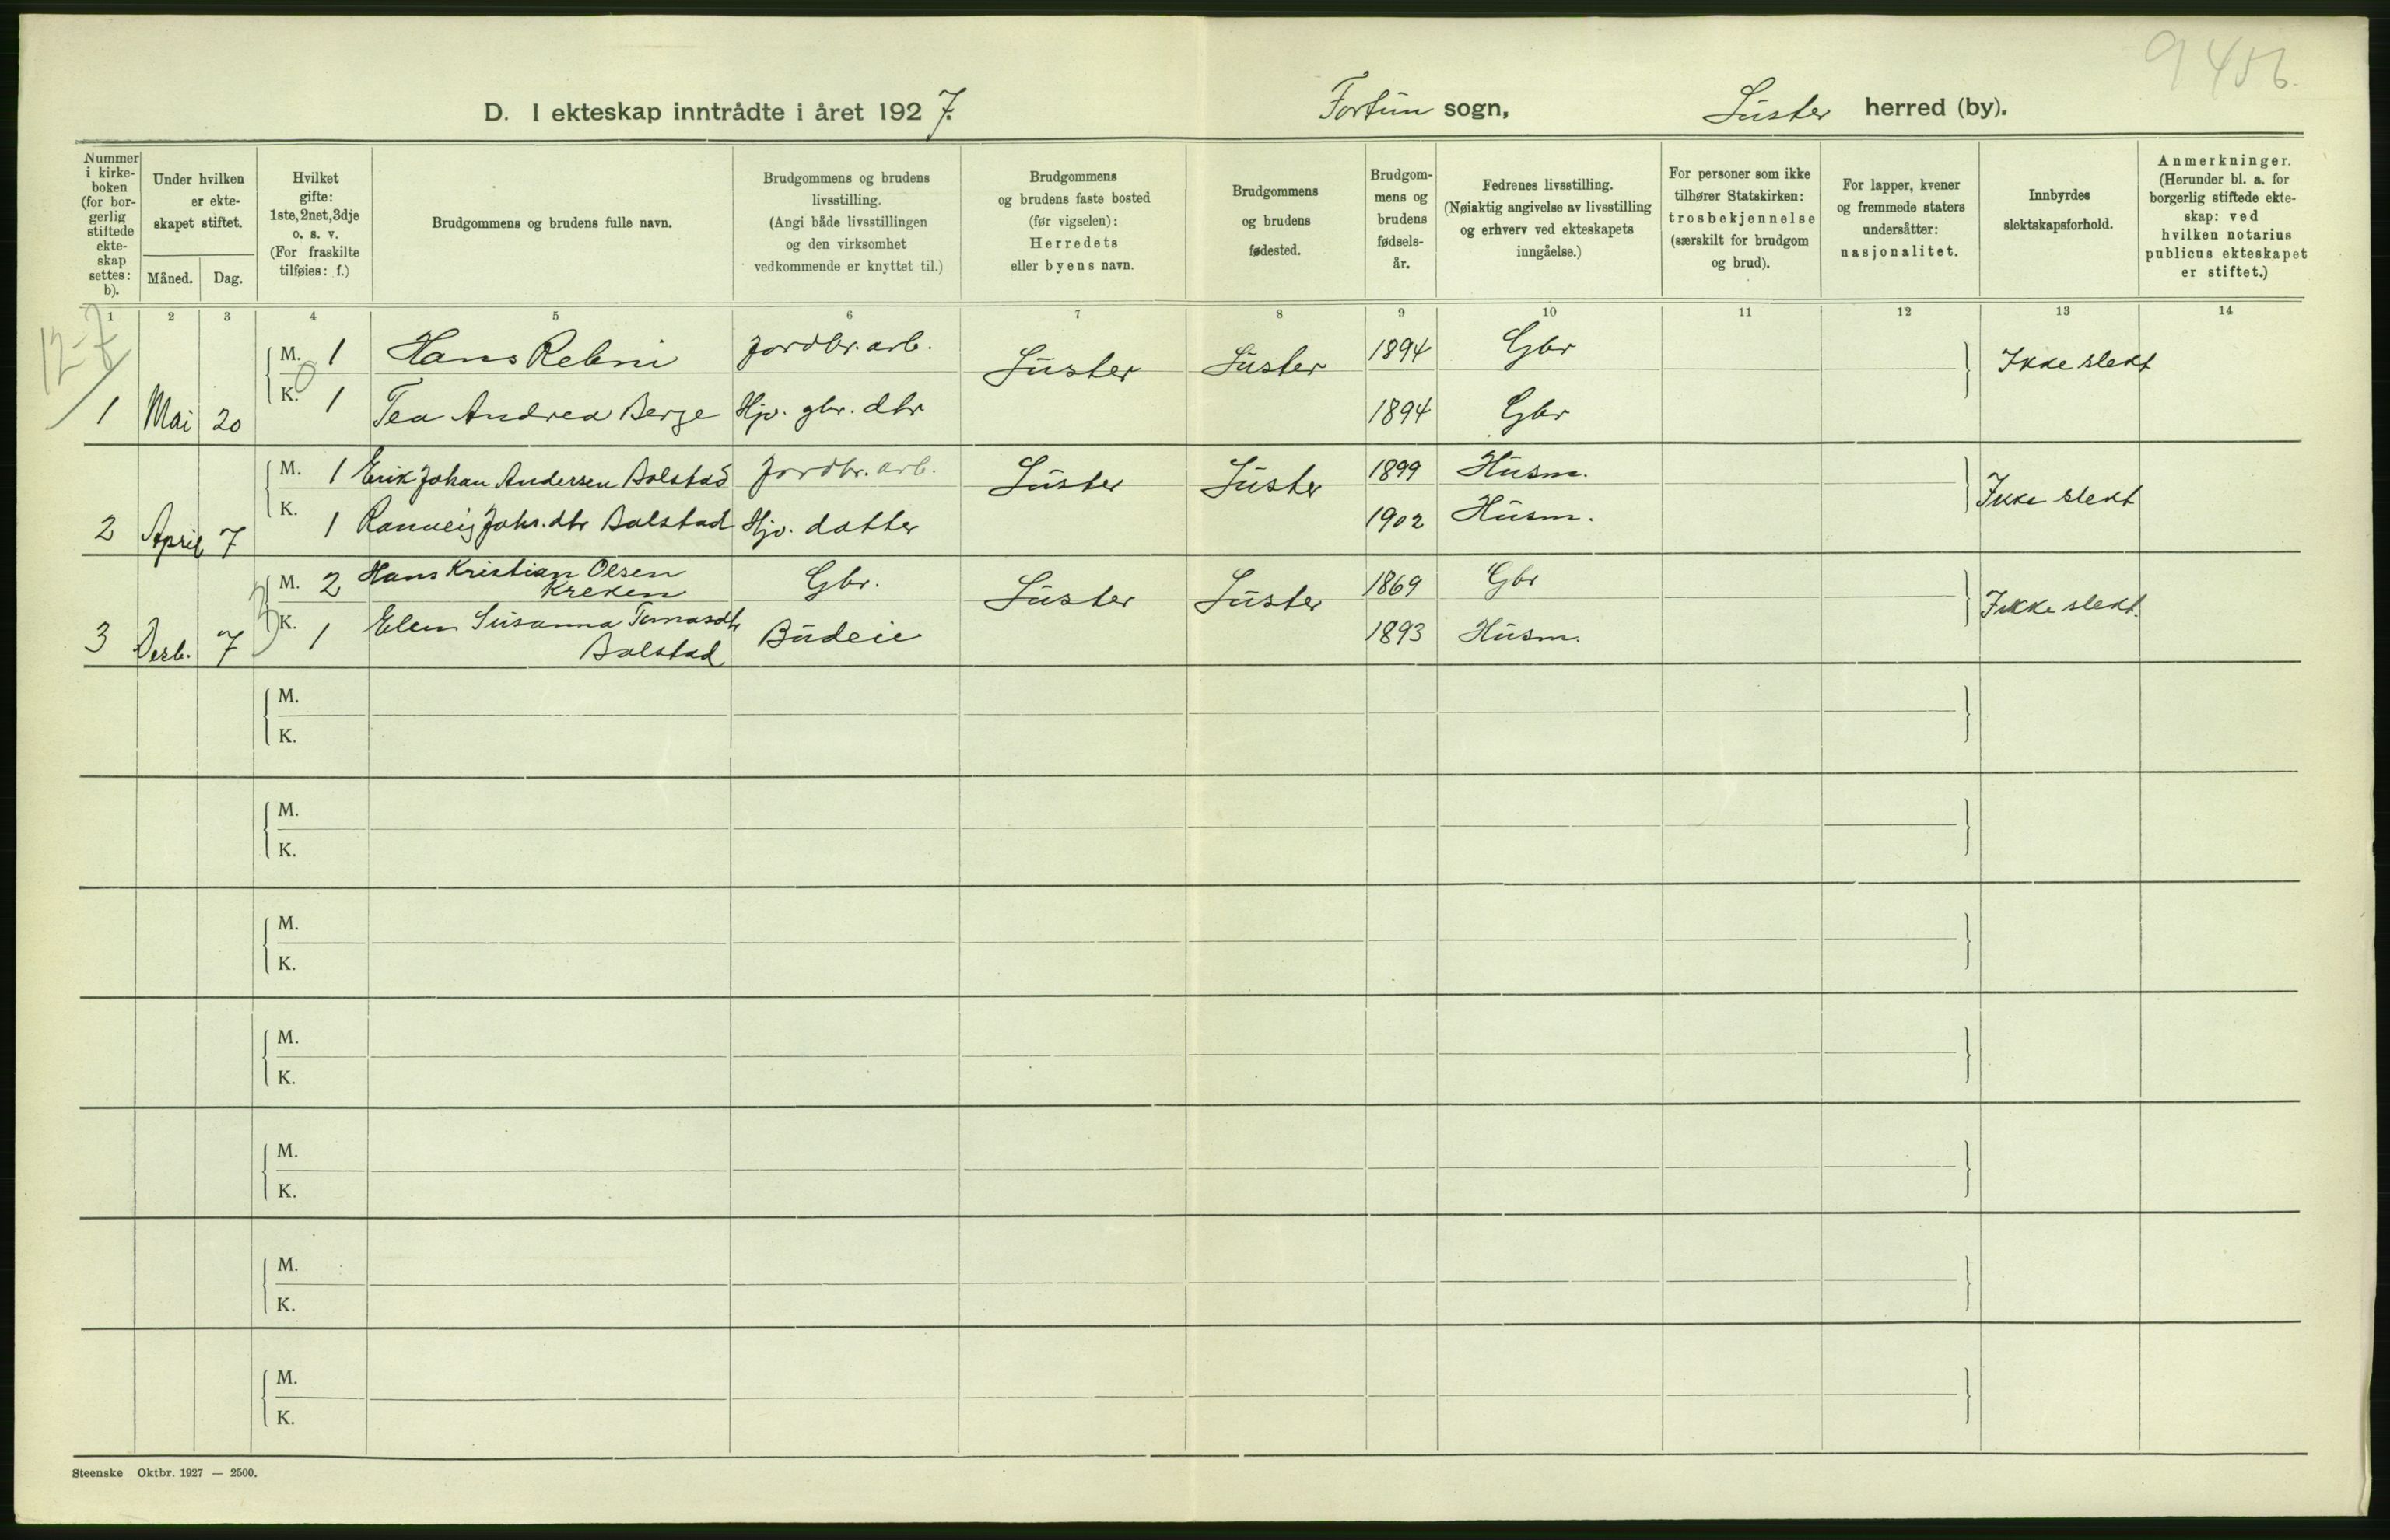 9456.
D. I ekteskap inntrådte i året 1927. Fortun sogn, Luster herred (by).
Nummer i kirke-boken (for bor-gerlig stiftede ekte-skap settes: b).
Under hvilken er ekte-skapet stiftet.
Måned. Dag.
Hvilket gifte: 1ste, 2net, 3dje o. s. v. (For fraskilte tilføies: f.)
Brudgommens og brudens fulle navn.
Brudgommens og brudens livsstilling. (Angi både livsstillingen og den virksomhet vedkommende er knyttet til.)
Brudgommens og brudens faste bosted (før vigselen): Herredets eller byens navn.
Brudgommens og brudens fødested.
Brudgom-mens og brudens fødsels-år.
Fedrenes livsstilling. (Nøiaktig angivelse av livsstilling og erhverv ved ekteskapets inngåelse.)
For personer som ikke tilhører Statskirken: trosbekjennelse (særskilt for brudgom og brud).
For lapper, kvener og fremmede staters undersåtter: nasjonalitet.
Innbyrdes slektskapsforhold.
Anmerkninger. (Herunder bl. a. for borgerlig stiftede ekte-skap: ved hvilken notarius publicus ekteskapet er stiftet.)
1 2 3 4 5 6 7 8 9 10 11 12 13 14
12-7
M. 1 Hans Rebni Jordbr. arb. Luster Luster 1894 Gbr Ikke slekt
0
1 Mai 20 K. 1 Tea Andrea Berge Hjv. gbr. dtr 1894 Gbr
M. 1 Erik Johan Andersen Bolstad Jordbr. arb. Luster Luster 1899 Husm. Ikke slekt
2 April 7 K. 1 Ranveig Johs. dtr Bolstad Hjv. datter 1902 Husm.
M. 2 Hans Kristian Olsen
Kreken Gbr. Luster Luster 1869 Gbr Ikke slekt.
3 Desb. 7 K. 1 Elen Susanna Tomasdtr
Bolstad Budeie 1893 Husm.
M.
K.
M.
K.
M.
K.
M.
K.
M.
K.
M.
K.
M.
K.
Steenske Oktbr. 1927 — 2500.